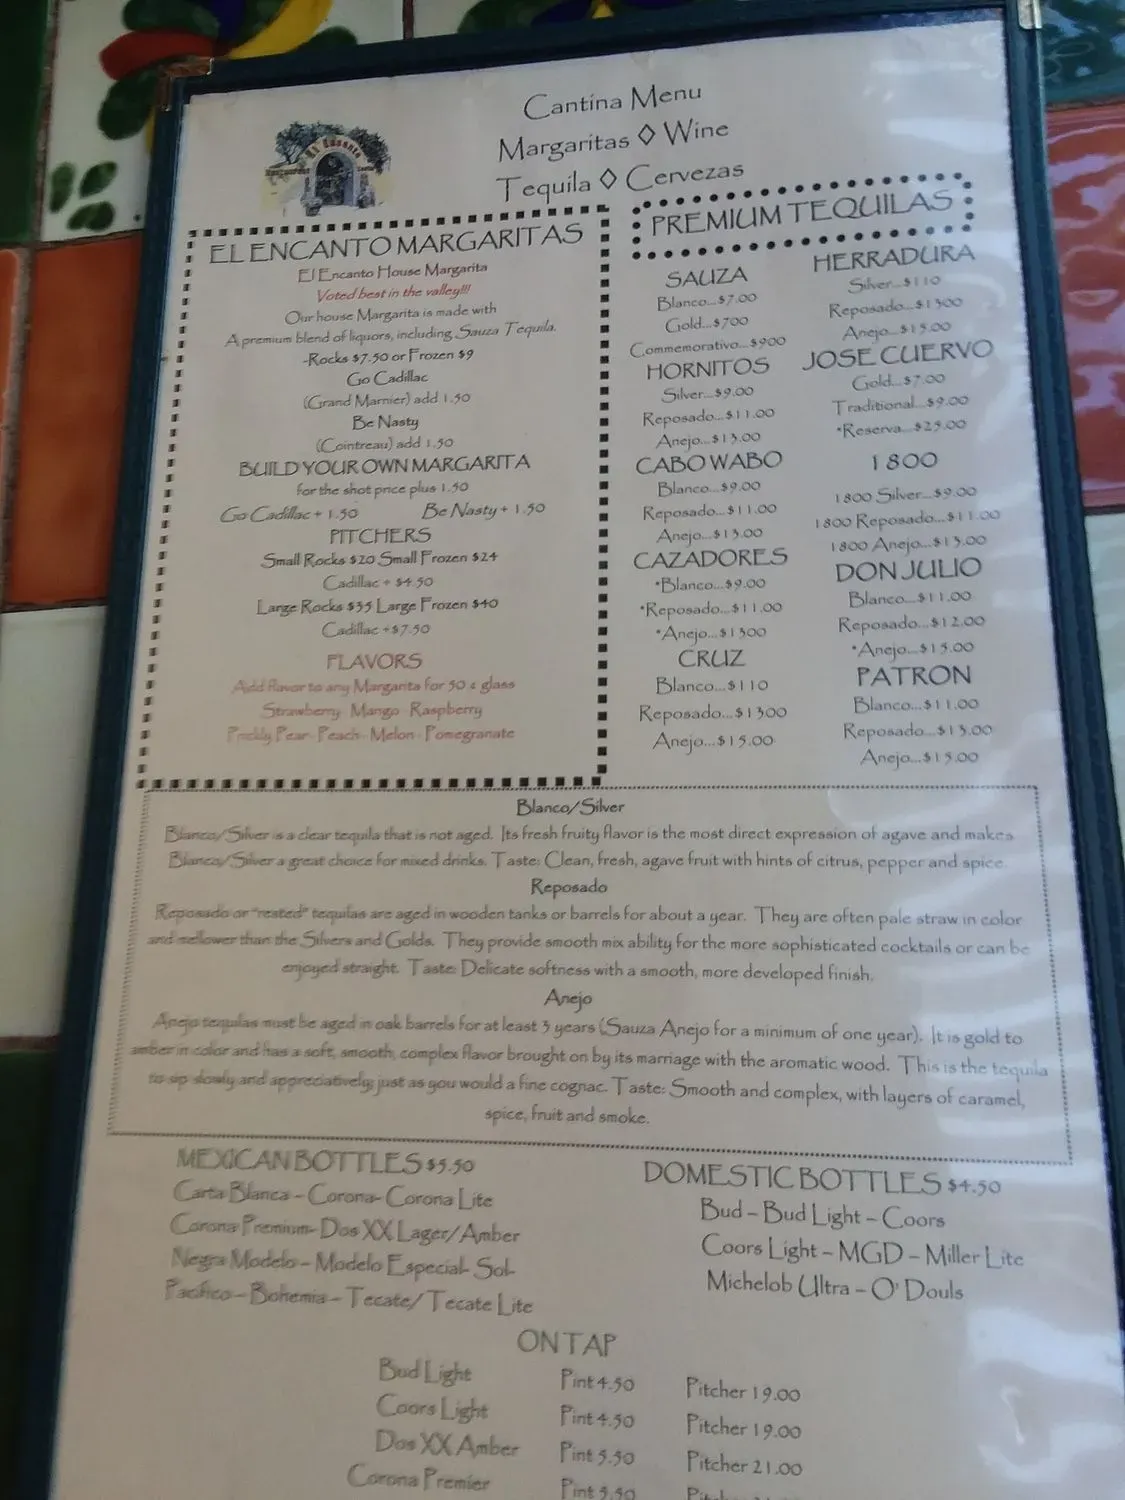 Cantina Menu
Margaritas ◊ Wine
Tequila ◊ Cervezas
El Encanto
EL ENCANTO MARGARITAS
El Encanto House Margarita
Voted best in the valley!!!
Our house Margarita is made with
A premium blend of liquors, including Sauza Tequila.
-Rocks $7.50 or Frozen $9
Go Cadillac
(Grand Marnier) add 1.50
Be Nasty
(Cointreau) add 1.50
BUILD YOUR OWN MARGARITA
for the shot price plus 1.50
Go Cadillac + 1.50 Be Nasty + 1.50
PITCHERS
Small Rocks $20 Small Frozen $24
Cadillac + $4.50
Large Rocks $35 Large Frozen $40
Cadillac +$7.50
FLAVORS
Add flavor to any Margarita for 50 ¢ glass
Strawberry - Mango - Raspberry
Prickly Pear- Peach- Melon - Pomegranate
PREMIUM TEQUILAS
SAUZA
Blanco...$7.00
Gold...$700
Commemorativo...$900
HORNITOS
Silver...$9.00
Reposado...$11.00
Anejo...$13.00
CABO WABO
Blanco...$9.00
Reposado...$11.00
Anejo...$13.00
CAZADORES
*Blanco...$9.00
*Reposado...$11.00
*Anejo...$1300
CRUZ
Blanco...$110
Reposado...$1300
Anejo...$15.00
HERRADURA
Silver...$110
Reposado...$1300
Anejo...$15.00
JOSE CUERVO
Gold...$7.00
Traditional...$9.00
*Reserva...$25.00
1800
1800 Silver...$9.00
1800 Reposado...$11.00
1800 Anejo...$13.00
DON JULIO
Blanco...$11.00
Reposado...$12.00
*Anejo...$15.00
PATRON
Blanco...$11.00
Reposado...$13.00
Anejo...$15.00
Blanco/Silver
Blanco/Silver is a clear tequila that is not aged. Its fresh fruity flavor is the most direct expression of agave and makes
Blanco/Silver a great choice for mixed drinks. Taste: Clean, fresh, agave fruit with hints of citrus, pepper and spice.
Reposado
Reposado or "rested" tequilas are aged in wooden tanks or barrels for about a year. They are often pale straw in color
and mellower than the Silvers and Golds. They provide smooth mix ability for the more sophisticated cocktails or can be
enjoyed straight. Taste: Delicate softness with a smooth, more developed finish.
Anejo
Anejo tequilas must be aged in oak barrels for at least 3 years (Sauza Anejo for a minimum of one year). It is gold to
amber in color and has a soft, smooth, complex flavor brought on by its marriage with the aromatic wood. This is the tequila
to sip slowly and appreciatively, just as you would a fine cognac. Taste: Smooth and complex, with layers of caramel,
spice, fruit and smoke.
MEXICAN BOTTLES $5.50
Carta Blanca – Corona- Corona Lite
Corona Premium- Dos XX Lager/Amber
Negra Modelo – Modelo Especial- Sol-
Pacifico – Bohemia – Tecate/ Tecate Lite
DOMESTIC BOTTLES $4.50
Bud – Bud Light – Coors
Coors Light – MGD – Miller Lite
Michelob Ultra – O' Douls
ON TAP
Bud Light Pint 4.50 Pitcher 19.00
Coors Light Pint 4.50 Pitcher 19.00
Dos XX Amber Pint 5.50 Pitcher 21.00
Corona Premier Pint 5.50